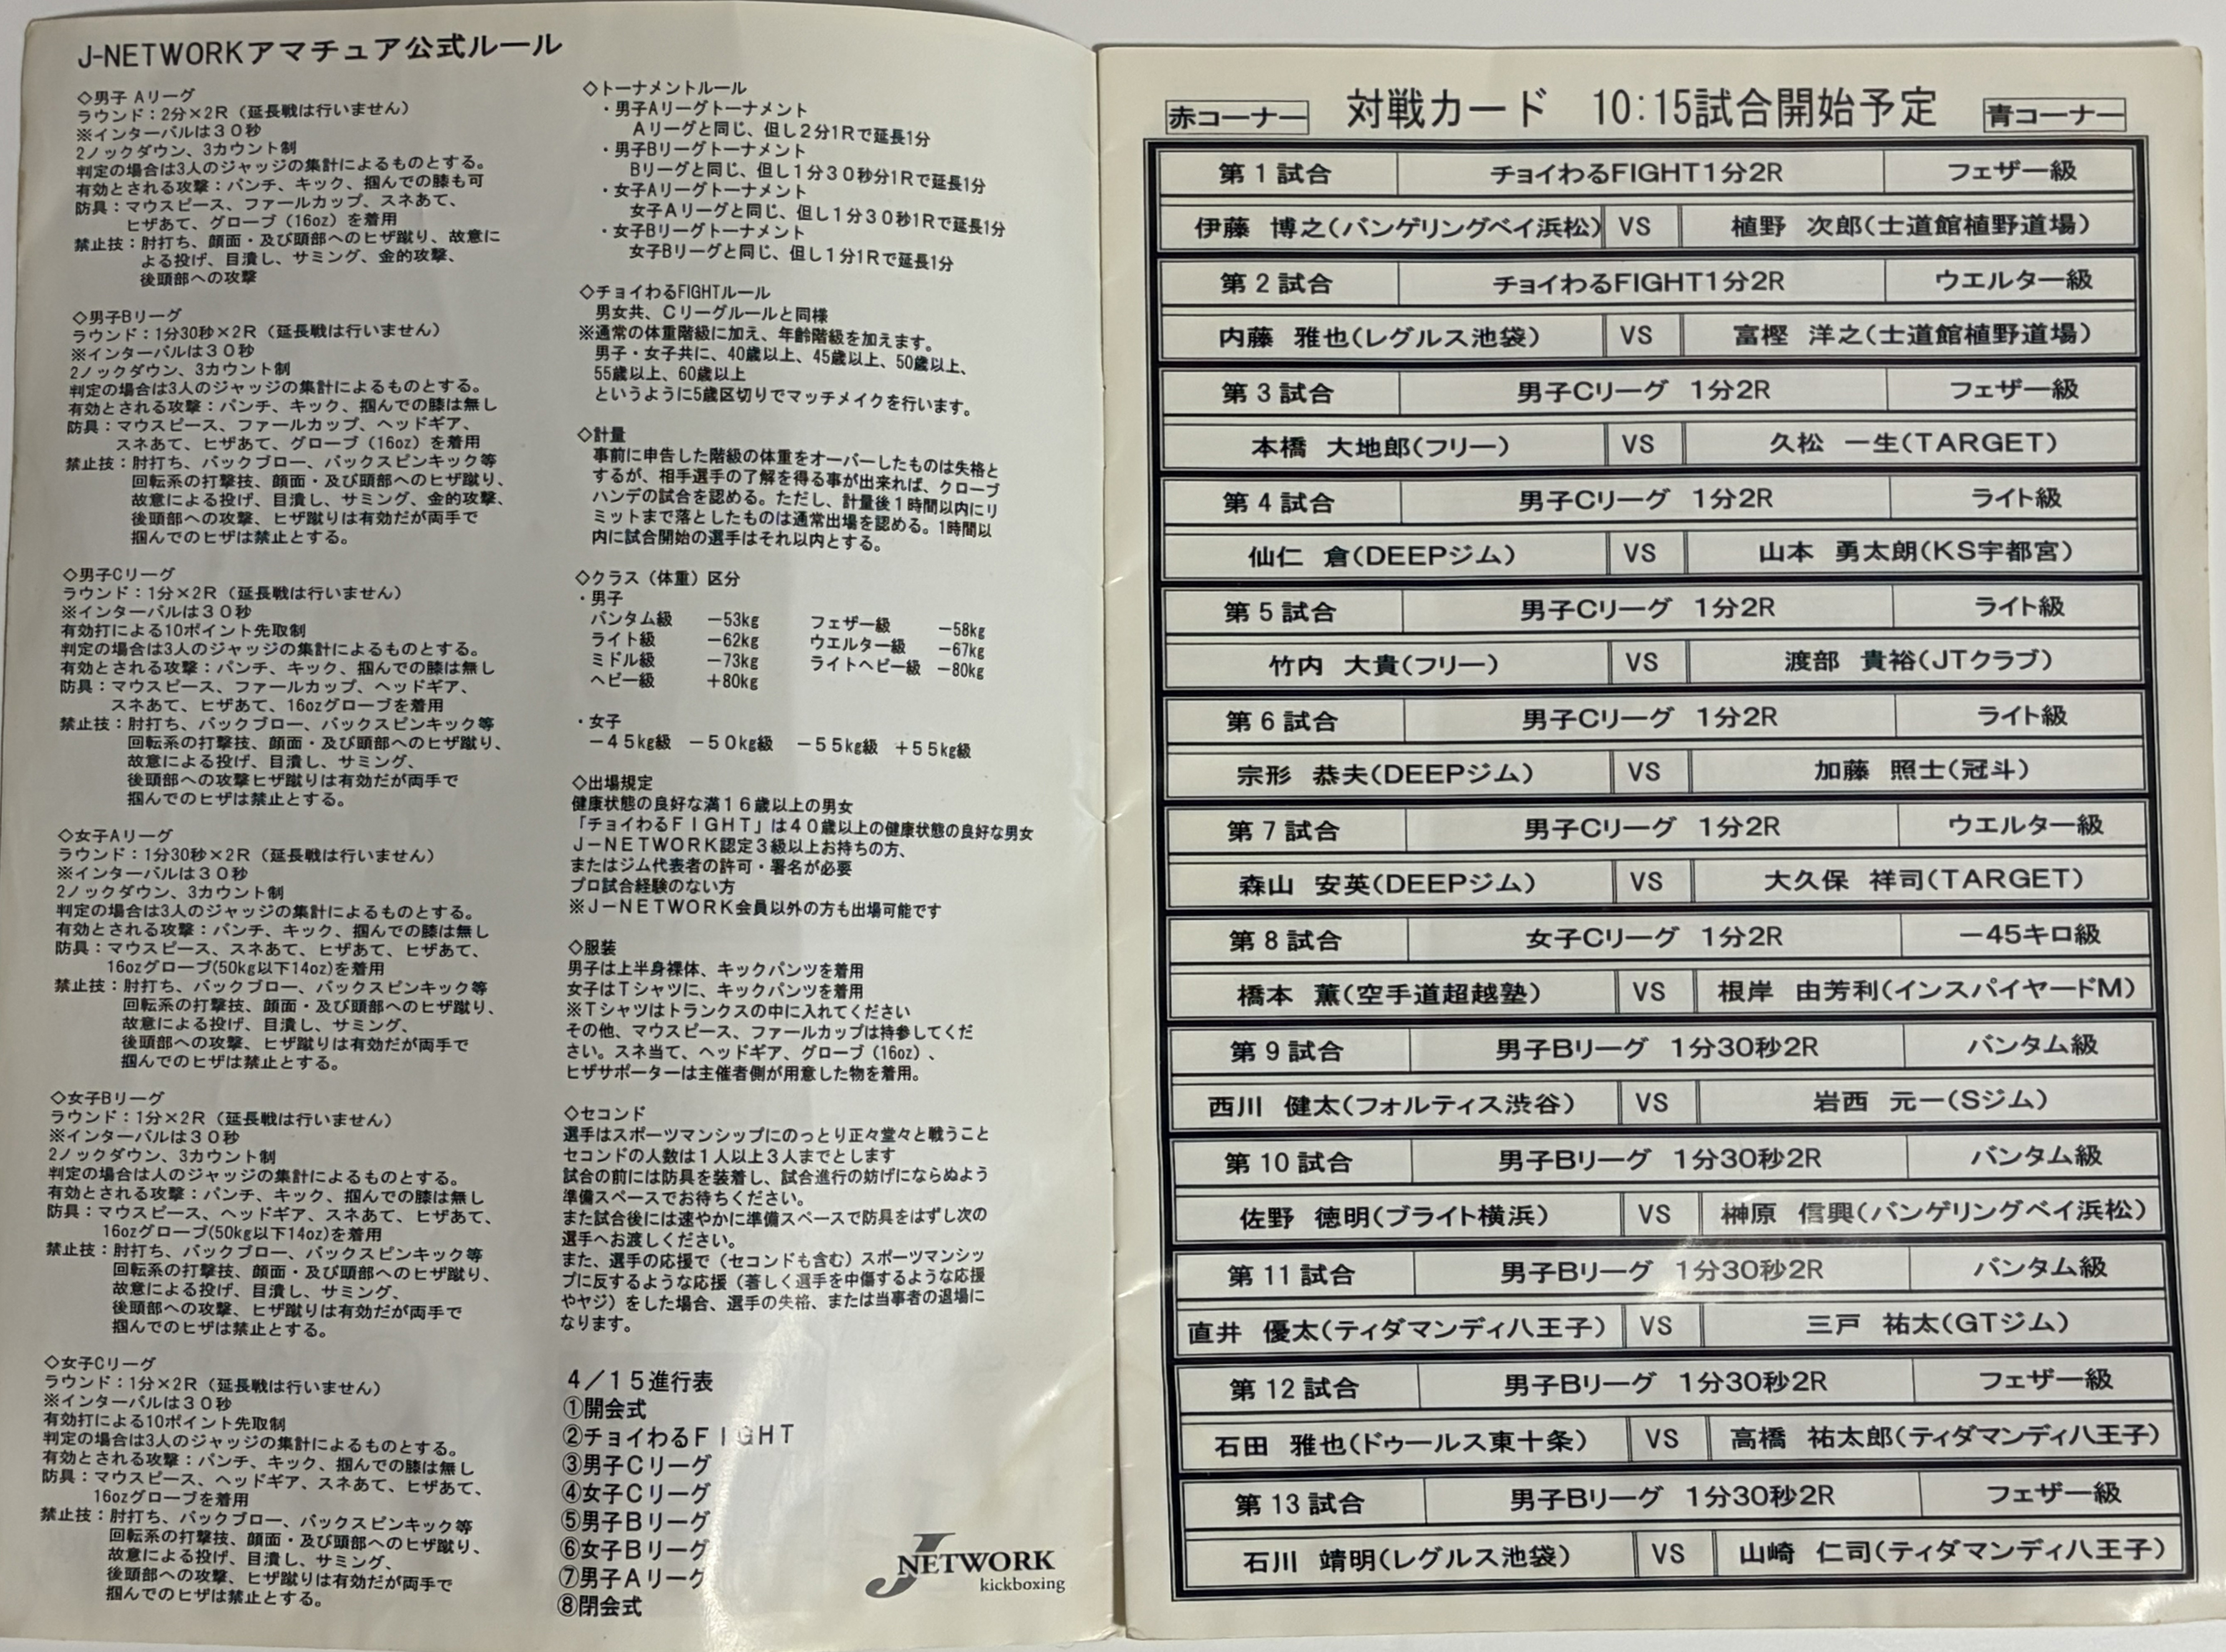 J-NETWORKアマチュア公式ルール
◇男子 Aリーグ
ラウンド：2分×2R（延長戦は行いません）
※インターバルは３０秒
2ノックダウン、3カウント制
判定の場合は3人のジャッジの集計によるものとする。
有効とされる攻撃：パンチ、キック、掴んでの膝も可
防具：マウスピース、ファールカップ、スネあて、
ヒザあて、グローブ（16oz）を着用
禁止技：肘打ち、顔面・及び頭部へのヒザ蹴り、故意に
よる投げ、目潰し、サミング、金的攻撃、
後頭部への攻撃
◇男子Bリーグ
ラウンド：1分30秒×2R（延長戦は行いません）
※インターバルは３０秒
2ノックダウン、3カウント制
判定の場合は3人のジャッジの集計によるものとする。
有効とされる攻撃：パンチ、キック、掴んでの膝は無し
防具：マウスピース、ファールカップ、ヘッドギア、
スネあて、ヒザあて、グローブ（16oz）を着用
禁止技：肘打ち、バックブロー、バックスピンキック等
回転系の打撃技、顔面・及び頭部へのヒザ蹴り、
故意による投げ、目潰し、サミング、金的攻撃、
後頭部への攻撃、ヒザ蹴りは有効だが両手で
掴んでのヒザは禁止とする。
◇男子Cリーグ
ラウンド：1分×2R（延長戦は行いません）
※インターバルは３０秒
有効打による10ポイント先取制
判定の場合は3人のジャッジの集計によるものとする。
有効とされる攻撃：パンチ、キック、掴んでの膝は無し
防具：マウスピース、ファールカップ、ヘッドギア、
スネあて、ヒザあて、16ozグローブを着用
禁止技：肘打ち、バックブロー、バックスピンキック等
回転系の打撃技、顔面・及び頭部へのヒザ蹴り、
故意による投げ、目潰し、サミング、
後頭部への攻撃ヒザ蹴りは有効だが両手で
掴んでのヒザは禁止とする。
◇女子Aリーグ
ラウンド：1分30秒×2R（延長戦は行いません）
※インターバルは３０秒
2ノックダウン、3カウント制
判定の場合は3人のジャッジの集計によるものとする。
有効とされる攻撃：パンチ、キック、掴んでの膝は無し
防具：マウスピース、スネあて、ヒザあて、ヒザあて、
16ozグローブ(50kg以下14oz)を着用
禁止技：肘打ち、バックブロー、バックスピンキック等
回転系の打撃技、顔面・及び頭部へのヒザ蹴り、
故意による投げ、目潰し、サミング、
後頭部への攻撃、ヒザ蹴りは有効だが両手で
掴んでのヒザは禁止とする。
◇女子Bリーグ
ラウンド：1分×2R（延長戦は行いません）
※インターバルは３０秒
2ノックダウン、3カウント制
判定の場合は人のジャッジの集計によるものとする。
有効とされる攻撃：パンチ、キック、掴んでの膝は無し
防具：マウスピース、ヘッドギア、スネあて、ヒザあて、
16ozグローブ(50kg以下14oz)を着用
禁止技：肘打ち、バックブロー、バックスピンキック等
回転系の打撃技、顔面・及び頭部へのヒザ蹴り、
故意による投げ、目潰し、サミング、
後頭部への攻撃、ヒザ蹴りは有効だが両手で
掴んでのヒザは禁止とする。
◇女子Cリーグ
ラウンド：1分×2R（延長戦は行いません）
※インターバルは３０秒
有効打による10ポイント先取制
判定の場合は3人のジャッジの集計によるものとする。
有効とされる攻撃：パンチ、キック、掴んでの膝は無し
防具：マウスピース、ヘッドギア、スネあて、ヒザあて、
16ozグローブを着用
禁止技：肘打ち、バックブロー、バックスピンキック等
回転系の打撃技、顔面・及び頭部へのヒザ蹴り、
故意による投げ、目潰し、サミング、
後頭部への攻撃、ヒザ蹴りは有効だが両手で
掴んでのヒザは禁止とする。
◇トーナメントルール
・男子Aリーグトーナメント
Aリーグと同じ、但し２分1Rで延長1分
・男子Bリーグトーナメント
Bリーグと同じ、但し１分３０秒分1Rで延長1分
・女子Aリーグトーナメント
女子Aリーグと同じ、但し１分３０秒1Rで延長1分
・女子Bリーグトーナメント
女子Bリーグと同じ、但し１分1Rで延長1分
◇チョイわるFIGHTルール
男女共、Cリーグルールと同様
※通常の体重階級に加え、年齢階級を加えます。
男子・女子共に、40歳以上、45歳以上、50歳以上、
55歳以上、60歳以上
というように5歳区切りでマッチメイクを行います。
◇計量
事前に申告した階級の体重をオーバーしたものは失格と
するが、相手選手の了解を得る事が出来れば、クローブ
ハンデの試合を認める。ただし、計量後１時間以内にリ
ミットまで落としたものは通常出場を認める。1時間以
内に試合開始の選手はそれ以内とする。
◇クラス（体重）区分
・男子
バンタム級 −53kg フェザー級 −58kg
ライト級 −62kg ウエルター級 −67kg
ミドル級 −73kg ライトヘビー級 −80kg
ヘビー級 +80kg
・女子
−４５kg級 −５０kg級 −５５kg級 +５５kg級
◇出場規定
健康状態の良好な満１６歳以上の男女
「チョイわるＦＩＧＨＴ」は４０歳以上の健康状態の良好な男女
Ｊ−ＮＥＴＷＯＲＫ認定３級以上お持ちの方、
またはジム代表者の許可・署名が必要
プロ試合経験のない方
※Ｊ−ＮＥＴＷＯＲＫ会員以外の方も出場可能です
◇服装
男子は上半身裸体、キックパンツを着用
女子はＴシャツに、キックパンツを着用
※Ｔシャツはトランクスの中に入れてください
その他、マウスピース、ファールカップは持参してくだ
さい。スネ当て、ヘッドギア、グローブ（16oz）、
ヒザサポーターは主催者側が用意した物を着用。
◇セコンド
選手はスポーツマンシップにのっとり正々堂々と戦うこと
セコンドの人数は１人以上３人までとします
試合の前には防具を装着し、試合進行の妨げにならぬよう
準備スペースでお待ちください。
また試合後には速やかに準備スペースで防具をはずし次の
選手へお渡しください。
また、選手の応援で（セコンドも含む）スポーツマンシッ
プに反するような応援（著しく選手を中傷するような応援
やヤジ）をした場合、選手の失格、または当事者の退場に
なります。
４／１５進行表
①開会式
②チョイわるＦＩＧＨＴ
③男子Ｃリーグ
④女子Ｃリーグ
⑤男子Ｂリーグ
⑥女子Ｂリーグ
⑦男子Ａリーグ
⑧閉会式
J NETWORK
kickboxing
赤コーナー 対戦カード 10:15試合開始予定 青コーナー
第1試合 チョイわるFIGHT1分2R フェザー級
伊藤 博之(バンゲリングベイ浜松) VS 植野 次郎(士道館植野道場)
第2試合 チョイわるFIGHT1分2R ウエルター級
内藤 雅也(レグルス池袋) VS 富樫 洋之(士道館植野道場)
第3試合 男子Cリーグ 1分2R フェザー級
本橋 大地郎(フリー) VS 久松 一生(TARGET)
第4試合 男子Cリーグ 1分2R ライト級
仙仁 倉(DEEPジム) VS 山本 勇太朗(KS宇都宮)
第5試合 男子Cリーグ 1分2R ライト級
竹内 大貴(フリー) VS 渡部 貴裕(JTクラブ)
第6試合 男子Cリーグ 1分2R ライト級
宗形 恭夫(DEEPジム) VS 加藤 照士(冠斗)
第7試合 男子Cリーグ 1分2R ウエルター級
森山 安英(DEEPジム) VS 大久保 祥司(TARGET)
第8試合 女子Cリーグ 1分2R −45キロ級
橋本 薫(空手道超越塾) VS 根岸 由芳利(インスパイヤードM)
第9試合 男子Bリーグ 1分30秒2R バンタム級
西川 健太(フォルティス渋谷) VS 岩西 元一(Sジム)
第10試合 男子Bリーグ 1分30秒2R バンタム級
佐野 徳明(ブライト横浜) VS 榊原 信興(バンゲリングベイ浜松)
第11試合 男子Bリーグ 1分30秒2R バンタム級
直井 優太(ティダマンディ八王子) VS 三戸 祐太(GTジム)
第12試合 男子Bリーグ 1分30秒2R フェザー級
石田 雅也(ドゥールス東十条) VS 高橋 祐太郎(ティダマンディ八王子)
第13試合 男子Bリーグ 1分30秒2R フェザー級
石川 靖明(レグルス池袋) VS 山崎 仁司(ティダマンディ八王子)